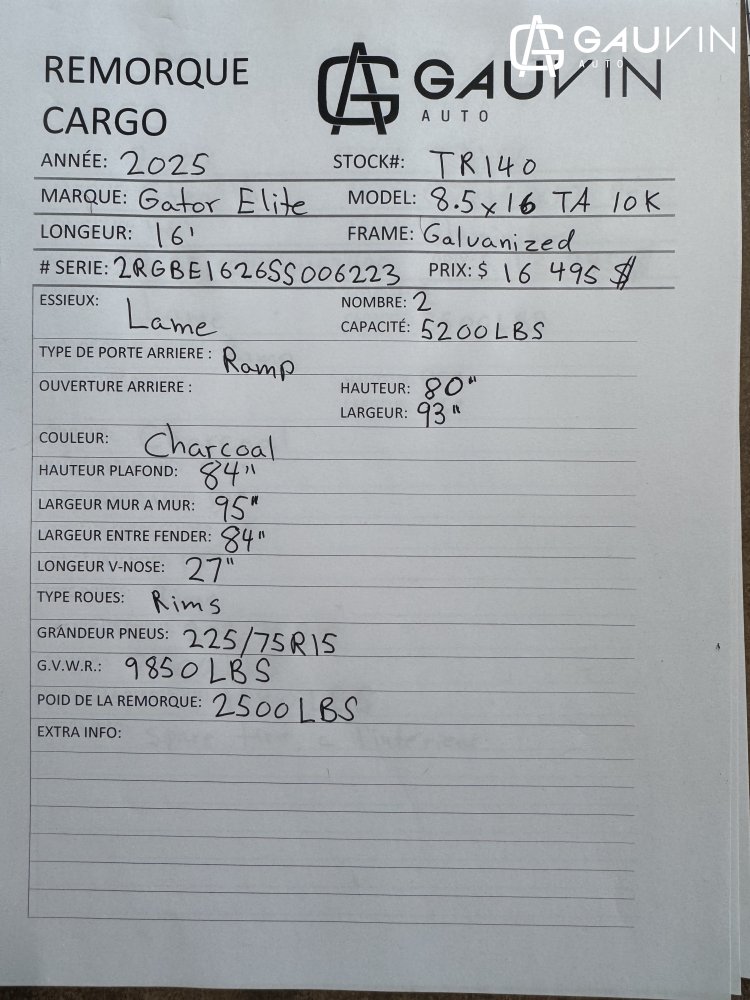 GAUVIN
AUTO
REMORQUE
CARGO
GAUVIN
AUTO
ANNÉE: 2025 STOCK#: TR140
MARQUE: Gator Elite MODEL: 8.5x16 TA 10K
LONGEUR: 16' FRAME: Galvanized
# SERIE: 2RGBE1626SS006223 PRIX: $ 16 495 $
ESSIEUX: Lame NOMBRE: 2
CAPACITÉ: 5200 LBS
TYPE DE PORTE ARRIERE : Ramp
OUVERTURE ARRIERE : HAUTEUR: 80"
LARGEUR: 93"
COULEUR: Charcoal
HAUTEUR PLAFOND: 84"
LARGEUR MUR A MUR: 95"
LARGEUR ENTRE FENDER: 84"
LONGEUR V-NOSE: 27"
TYPE ROUES: Rims
GRANDEUR PNEUS: 225/75R15
G.V.W.R.: 9850 LBS
POID DE LA REMORQUE: 2500 LBS
EXTRA INFO: